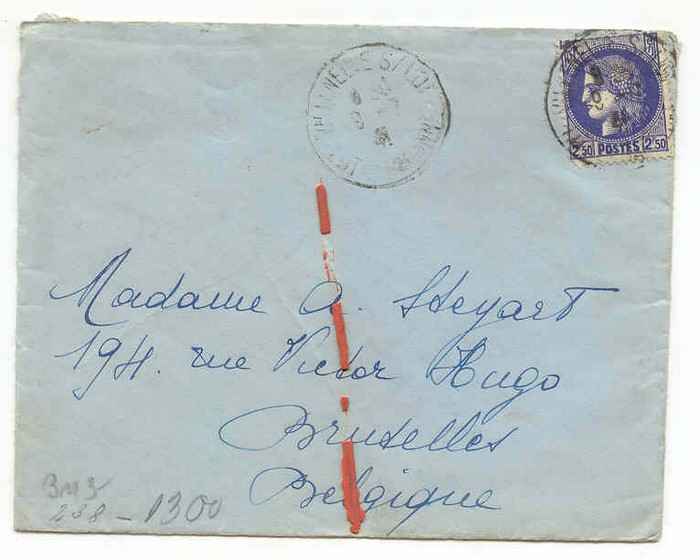 2,50 POSTES 2,50
Madame A. Steyaert
194. rue Victor Hugo
Bruxelles
Belgique
238 - 1300